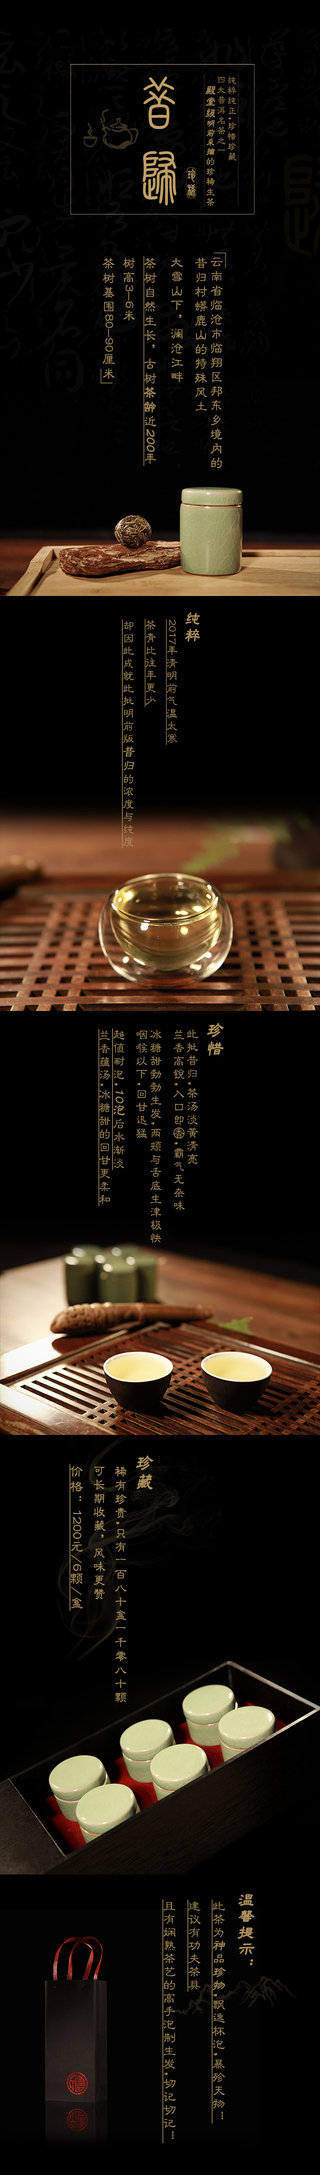 昔归
珍藏
纯粹纯正·珍惜珍藏
四大普洱名茶之一
殿堂级明前采摘的珍稀生茶
「云南省临沧市临翔区邦东乡境内的
昔归村蟒鹿山的特殊风土
大雪山下，澜沧江畔
茶树自然生长，古树茶龄近200年
树高3—6米
茶树基围80—90厘米」
纯粹
2017年清明前气温太寒
茶青比往年更少
却因此成就此批明前版昔归的浓度与纯度
珍惜
此批昔归，茶汤淡黄清亮
兰香高锐，入口即香，霸气无杂味
冰糖甜勃勃生发，两颊与舌底生津极快
咽喉以下，回甘迅猛
超值耐泡，10泡后水渐淡
兰香蕴汤，冰糖甜的回甘更柔和
珍藏
稀有珍贵，只有一百八十盒一千零八十颗
可长期收藏，风味更赞
价格：1200元/6颗/盒
温馨提示：
此茶为神品珍物，飘逸杯泡，暴殄天物！
建议有功夫茶具
且有娴熟茶艺的高手泡制生发，切记切记！